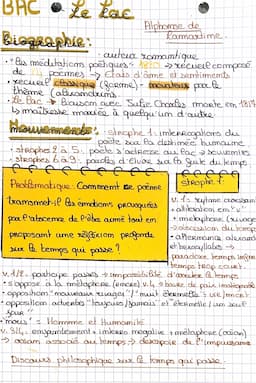 BAC
Le Lac
Alphonse de
Lamartine.
Biographie:
auteur romantique
• "les méditations poétiques" → recueil composé
de poèmes → états d'âme et sentiments
• recueil classique (forme) - novateur par le
thème (alexandrins
• Le lac → liaison avec Julie Charles morte en 1817
ls maîtresse mariée à quelqu'un d'autre
Mouvements: strophe 1: interrogations du
poète sur la destinée humaine
• strophes 2 à 5: poète s'adresse au lac → souvenirs
• strophes 6 à 9: paroles d'Elvire sur la fuite du temps
Problématique: Comment ce poème
transmet-il les émotions provoquées
par l'absence de l'être aimé tout en
proposant une réflexion profonde
sur le temps qui passe?
strophe 1
v.1: rythme croissant
+ allitération en "
• métaphore (rivage
→ obscurcion du temps
• alternance alexand
et hexasyllabes →
paradoxe temps long
temps trop court.
v.1/2: participe passés → impossibilité d'arrêter le temps
• s'oppose à la métaphore (ancre) v.4 → havre de paix inatteignable
• opposition "nouveaux rivages"/"nuit éternelle": vie/mort
• opposition adverbes "toujours/jamais" et "éternelle/un seul
jour"
• "nous": → Homme et Humanité
v.3/4: enjambement + interro négative + métaphore (océan)
→ océan associé au temps → désespoir de l'impuissance
Discours philosophique sur le temps qui passe.